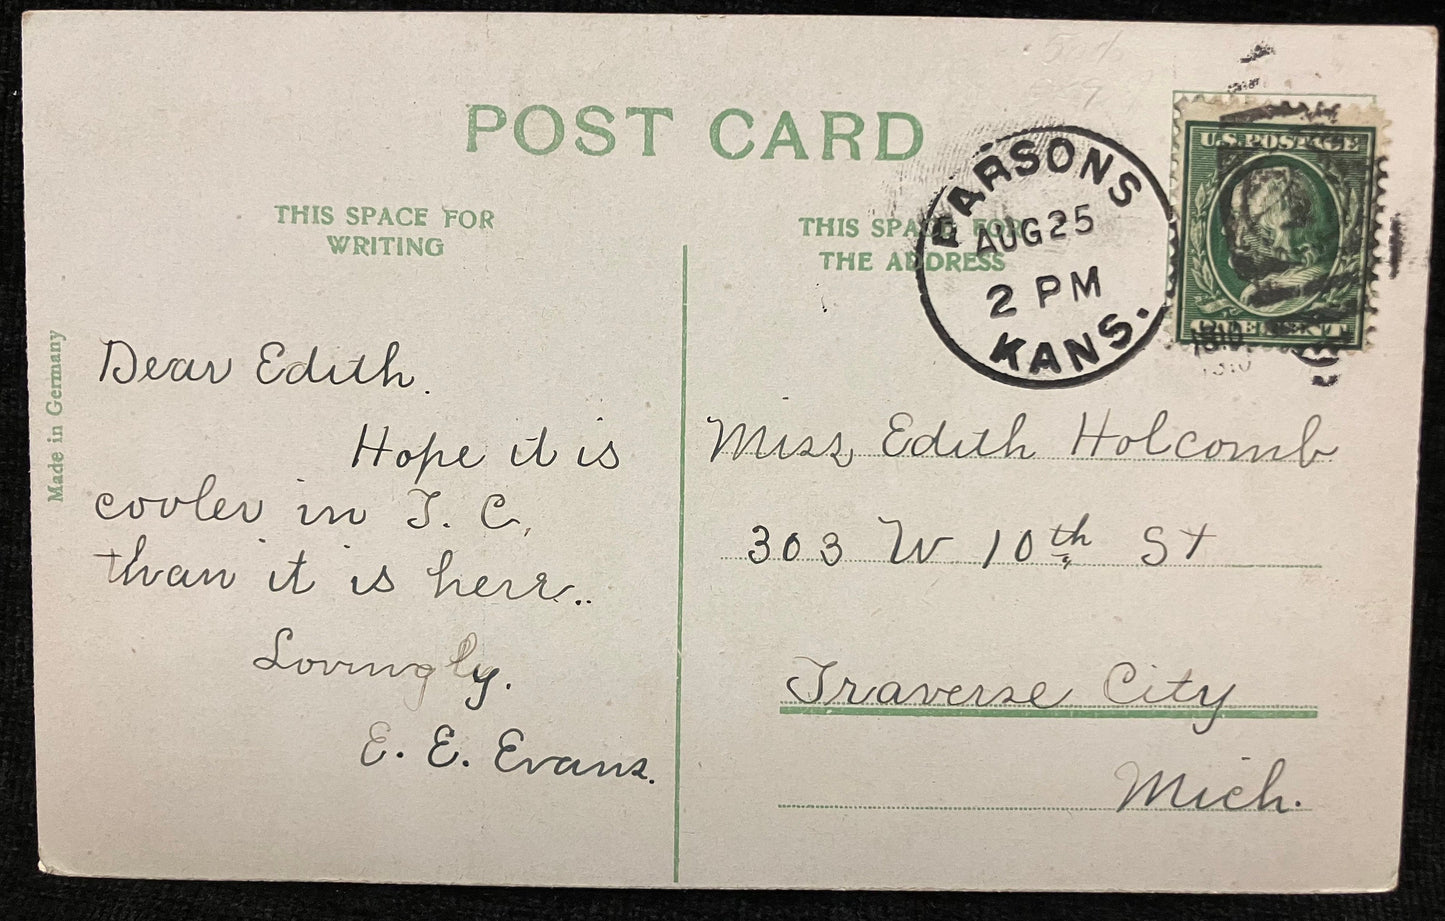 POST CARD
THIS SPACE FOR
WRITING
THIS SPACE FOR
THE ADDRESS
PARSONS
AUG 25
2 PM
KANS.
1910
U.S. POSTAGE
ONE CENT
Made in Germany
Dear Edith.
Hope it is
cooler in T. C,
than it is here..
Lovingly.
E. E. Evans.
Miss Edith Holcomb
303 W 10th St
Traverse City
Mich.